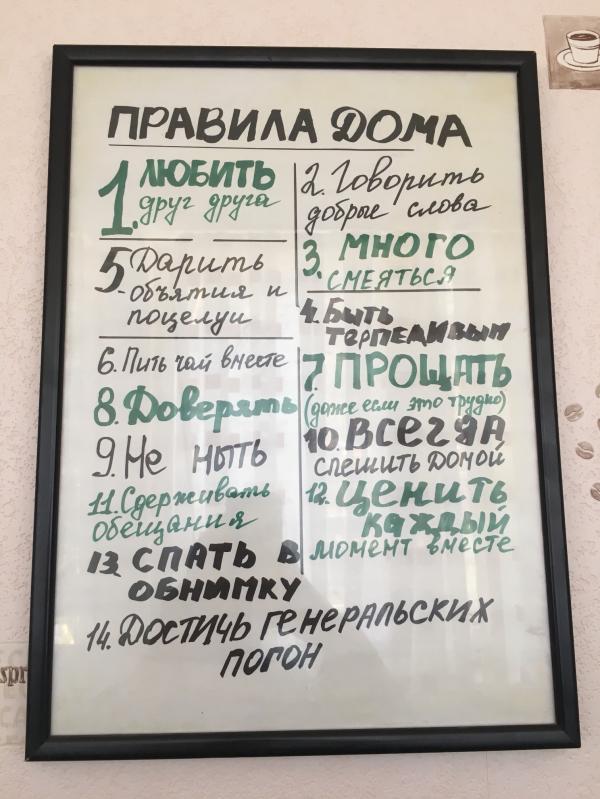 ПРАВИЛА ДОМА
1. ЛЮБИТЬ
друг друга
2. Говорить
добрые слова
3. МНОГО
СМЕЯТЬСЯ
4. Быть
терпедивым
5 Дарить
объятия и
поцелуи
6. Пить чай вместе
7. ПРОЩАТЬ
(даже если это трудно)
8. Доверять
9. Не ныть
10. ВСЕГДА
СПЕШИТЬ ДОМОЙ
11. Сдерживать
обещания
12. ЦЕНИТЬ
КАЖДЫЙ
МОМЕНТ вместе
13. СПАТЬ В
ОБНИМКУ
14. ДОСТИЧЬ ГЕНЕРАЛЬСКИХ
ПОГОН
spr